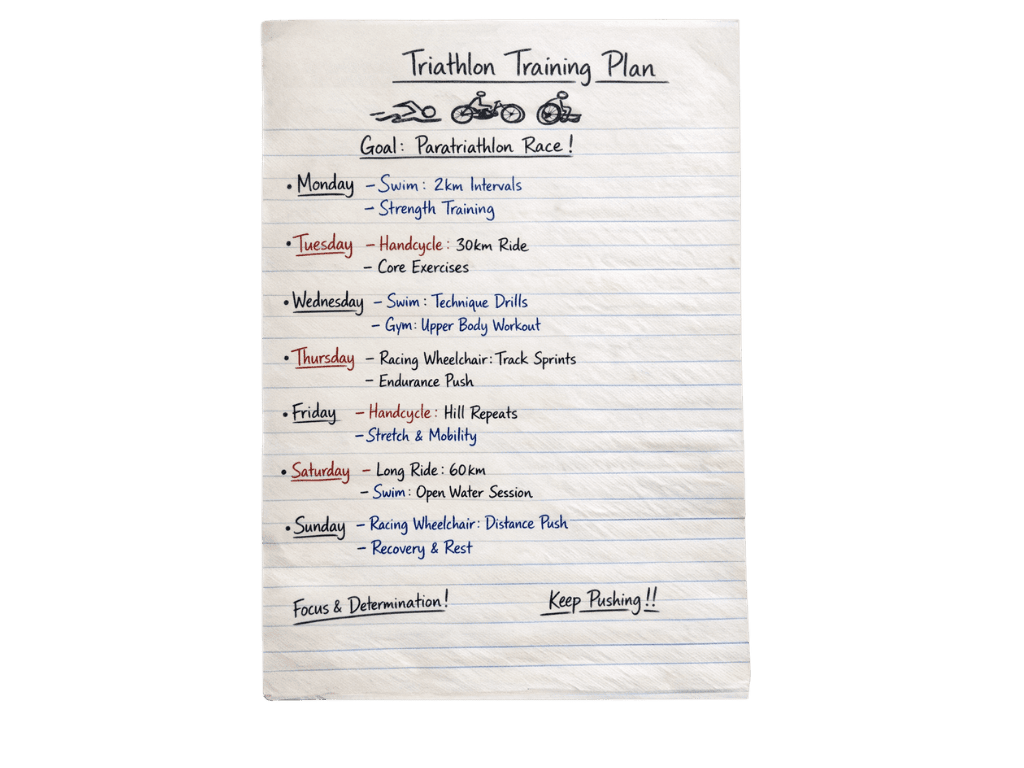 Triathlon Training Plan
Goal: Paratriathlon Race!
• Monday – Swim: 2km Intervals
– Strength Training
• Tuesday – Handcycle: 30km Ride
– Core Exercises
• Wednesday – Swim: Technique Drills
– Gym: Upper Body Workout
• Thursday – Racing Wheelchair: Track Sprints
– Endurance Push
• Friday – Handcycle: Hill Repeats
– Stretch & Mobility
• Saturday – Long Ride: 60km
– Swim: Open Water Session
• Sunday – Racing Wheelchair: Distance Push
– Recovery & Rest
Focus & Determination! Keep Pushing!!